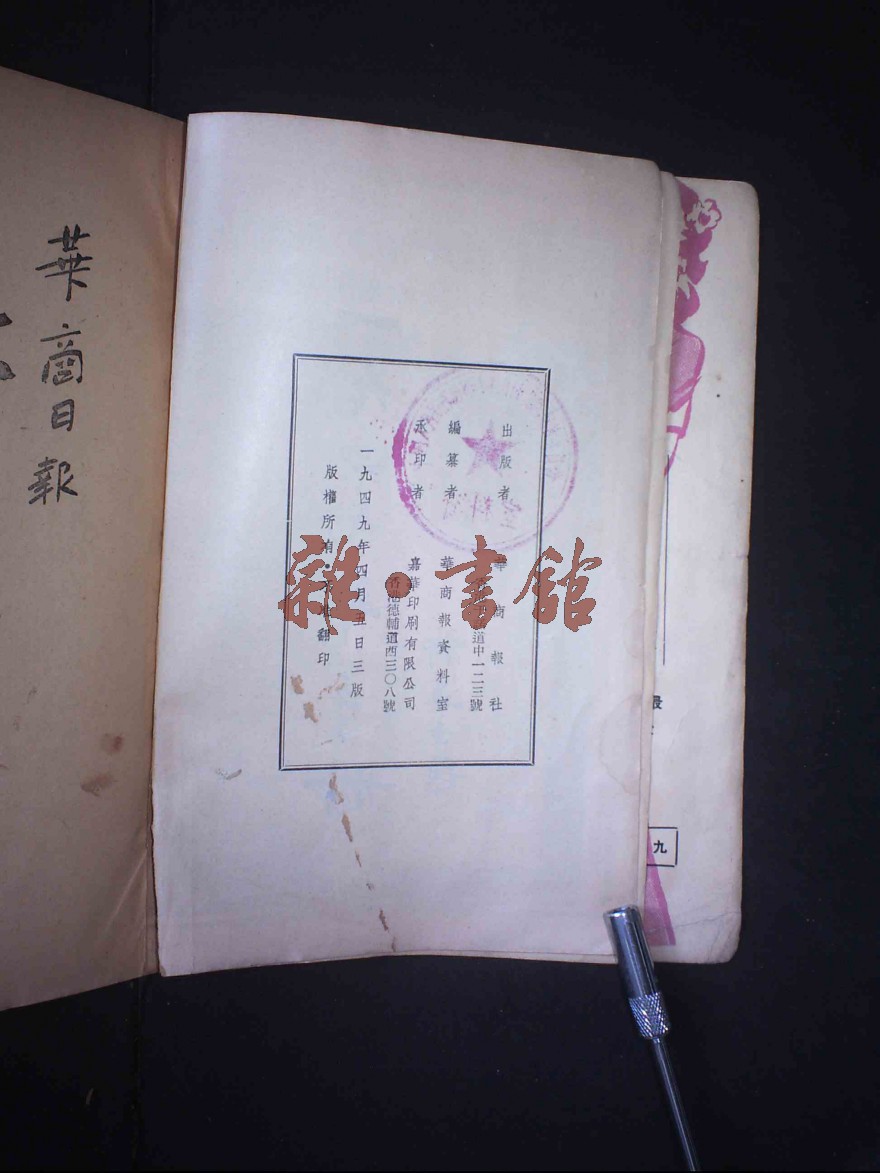 出版者 華商報社
道中一二三號
編纂者 華商報資料室
承印者 嘉華印刷有限公司
香港德輔道西三〇八號
一九四九年四月五日三版
版權所有 翻印
華商日報
九
雜·書館